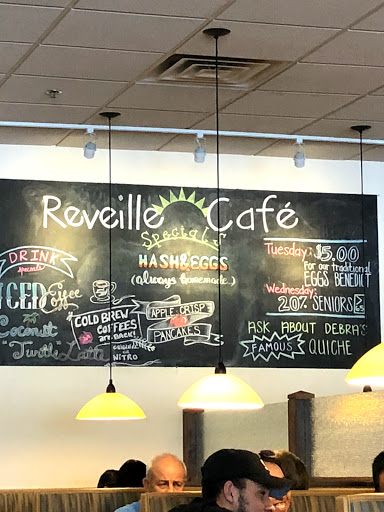 Reveille Café
Specials
HASH & EGGS
(always homemade.)
DRINK
specials
ICED Coffee
Coconut
"Turtle" Latte
COLD BREW
COFFEES
are BACK!
NITRO
APPLE CRISP
PANCAKES
Tuesday: $5.00
For our traditional
EGGS BENEDICT
Wednesday:
20% SENIORS
ASK ABOUT DEBRA'S
FAMOUS QUICHE